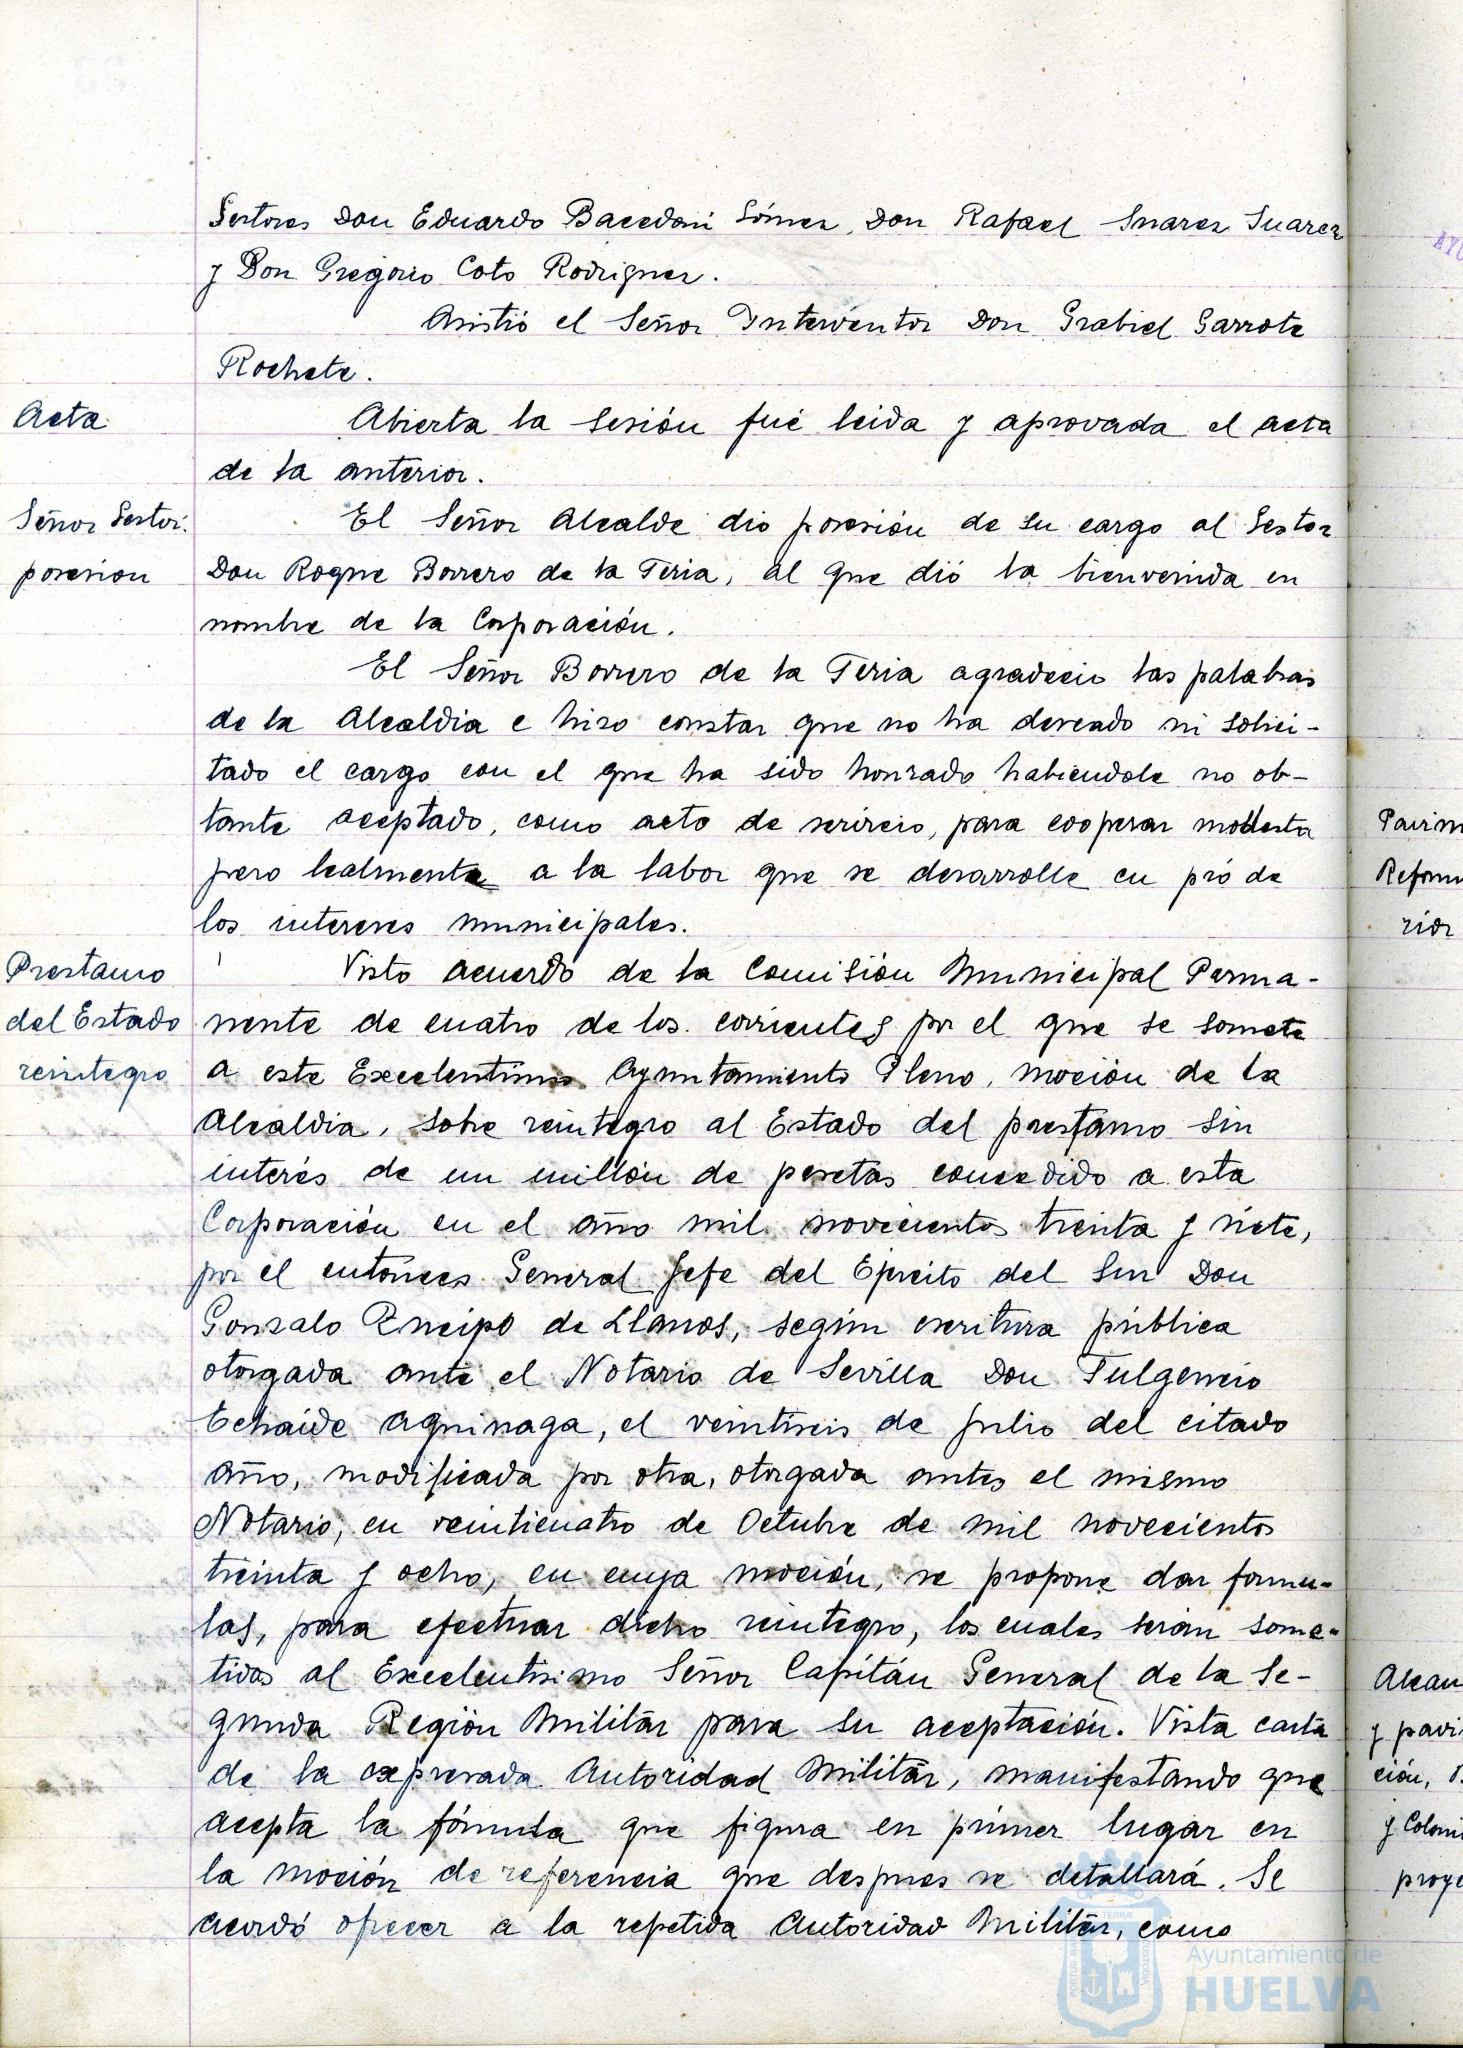 Gestores Don Eduardo Bacedoni Gómez, Don Rafael Suarez Suarez
y Don Gregorio Coto Rodriguez.
Asistió el Señor Interventor Don Grabiel Garrote
Rochete.
Acta
Abierta la sesión fué leida y aprovada el acta
de la anterior.
Señor Gestor.
posesion
El Señor Alcalde dio posesión de su cargo al Gestor
Don Roque Borrero de la Feria, al que dió la bienvenida en
nombre de la Corporación.
El Señor Borrero de la Feria agradecio las palabras
de la Alcaldia e hizo constar que no ha deseado ni solici-
tado el cargo con el que ha sido honrado habiendole no ob-
tante aceptado, como acto de servicio, para cooperar modesta
pero lealmente a la labor que se desarrolle en pró de
los intereses municipales.
Prestamo
del Estado
reintegro
Visto acuerdo de la Comisión Municipal Perma-
nente de cuatro de los corrientes por el que se somete
a este Excelentisimo Ayuntamiento Pleno, moción de la
Alcaldia, sobre reintegro al Estado del prestamo sin
interés de un millón de pesetas concedido a esta
Corporación en el año mil novecientos treinta y siete,
por el entonces General Jefe del Ejercito del Sur Don
Gonzalo Queipo de Llanos, según escritura pública
otorgada ante el Notario de Sevilla Don Fulgencio
Echaide Aguinaga, el veintiseis de julio del citado
año, modificada por otra, otorgada antes el mismo
Notario, en veinticuatro de Octubre de mil novecientos
treinta y ocho, en cuya moción, se propone dar formu-
las, para efectuar dicho reintegro, los cuales serán some-
tidas al Excelentisimo Señor Capitán General de la Se-
gunda Región Militar para su aceptación. Vista carta
de la expresada Autoridad Militar, manifestando que
acepta la fórmula que figura en primer lugar en
la moción de referencia que despues se detallará. Se
acordó ofrecer a la repetida Autoridad Militar, como
Ayuntamiento de
HUELVA